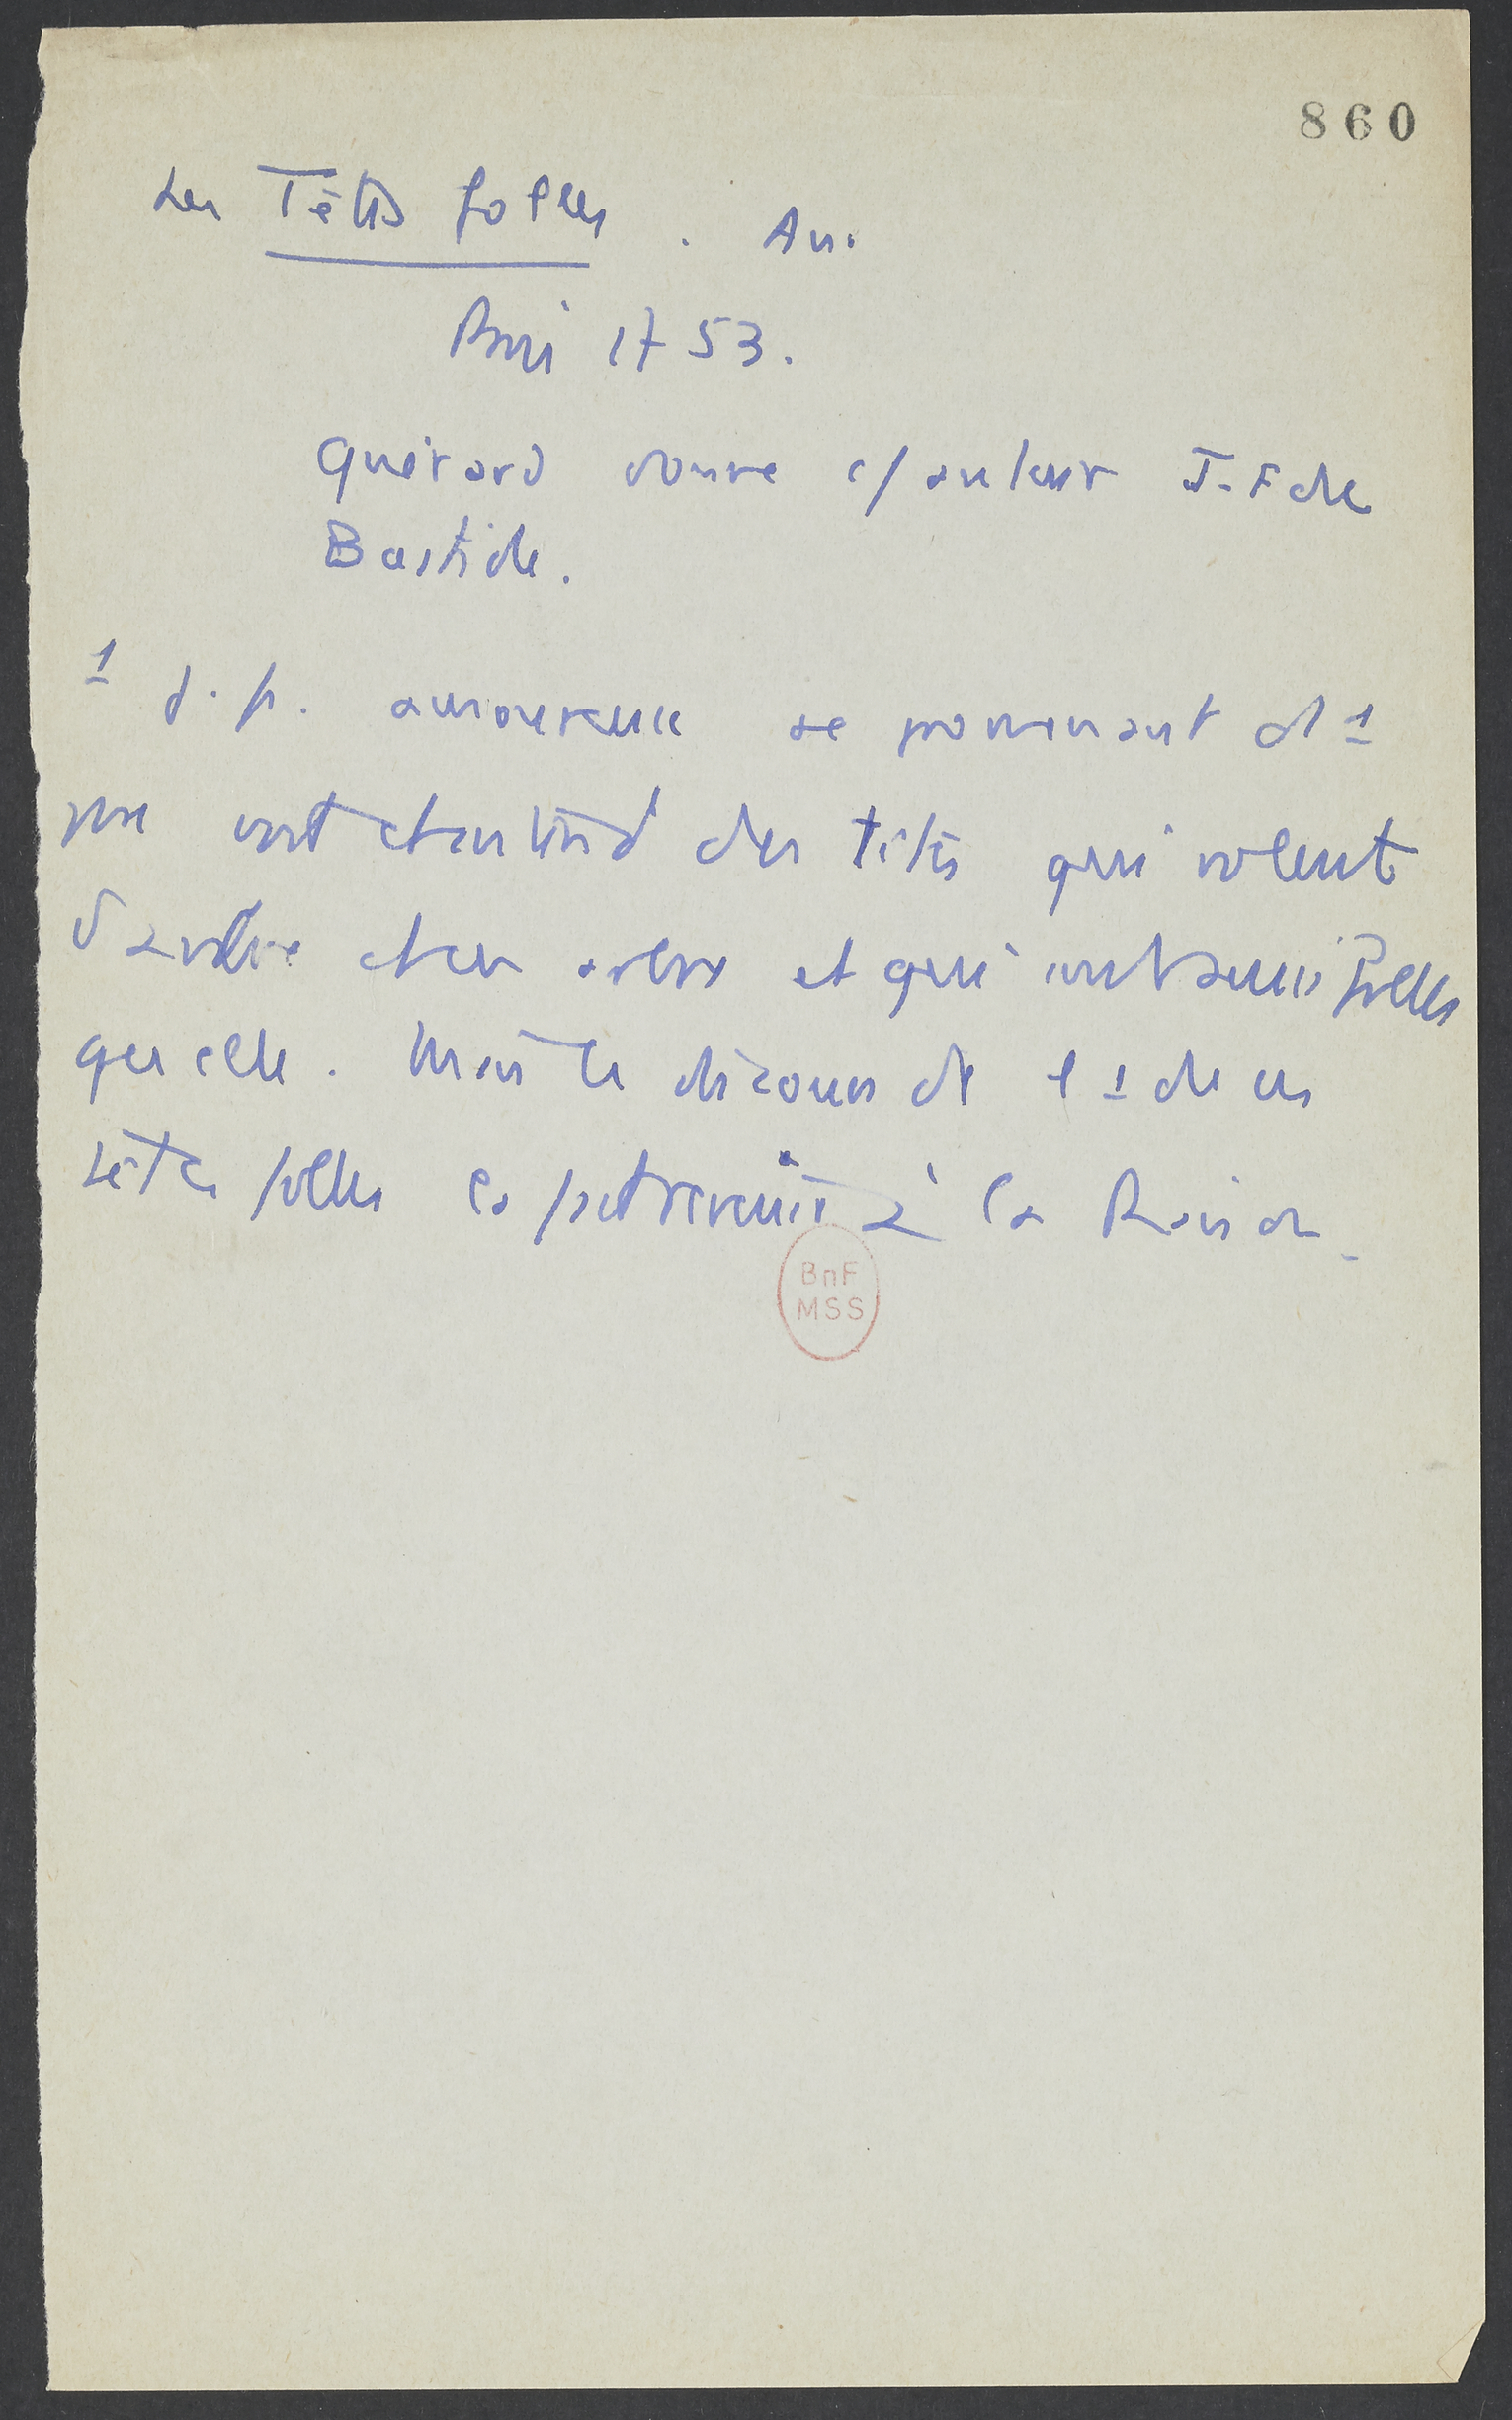 860
Les Têtes folles. An.
Paris 1753.
Quérard donne c/ auteur J-F de
Bastide.
1 j. f. amoureuse se promenant ds 1
voit des têtes qui volent
d'arbre en arbre et qui sont aussi folles
qu'elle. Mais le discours de l'1 de ces
têtes folles la fait revenir à la Raison.
BnF
MSS